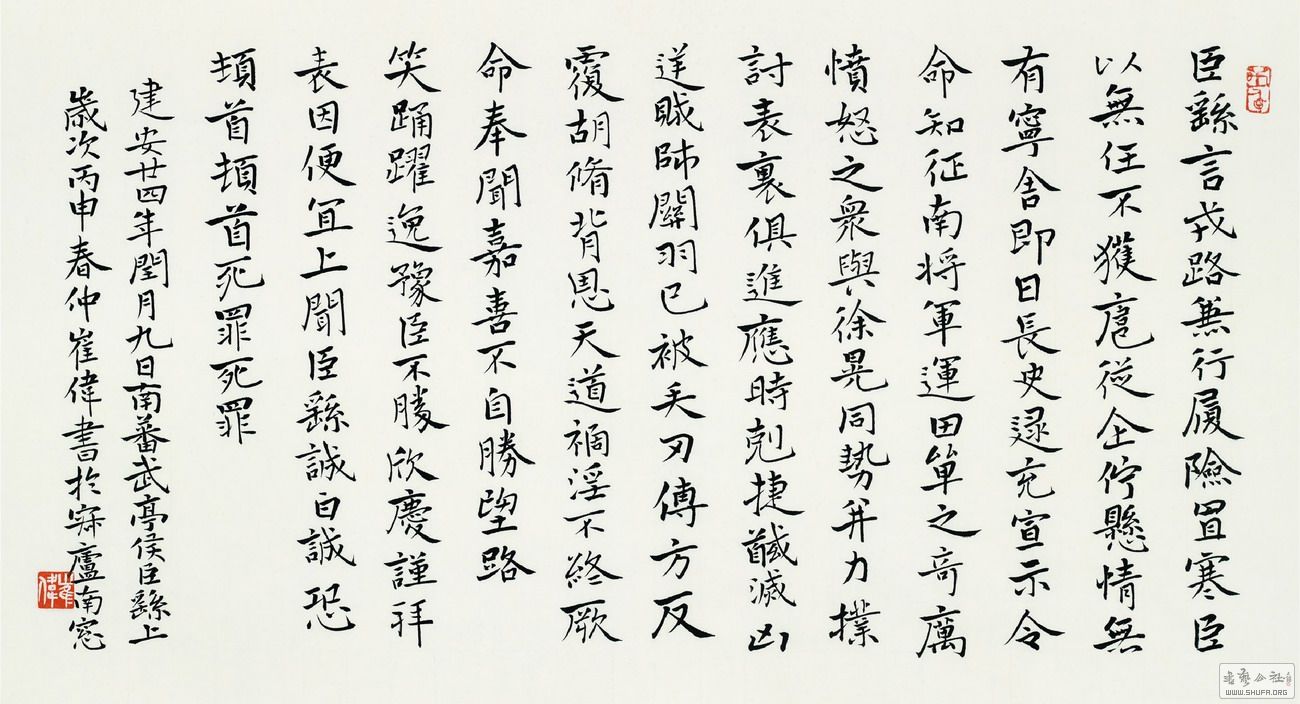 臣繇言戎路兼行履險冒寒臣
以無任不獲扈從企佇懸情無
有寧舍即日長史逯充宣示令
命知征南将軍運田單之奇厲
憤怒之衆與徐晃同勢并力撲
討表裏俱進應時剋捷馘滅凶
逆賊帥關羽已被矢刃傅方反
覆胡脩背恩天道禍淫不終厥
命奉聞嘉喜不自勝望路
笑踊躍逸豫臣不勝欣慶謹拜
表因便宜上聞臣繇誠白誠恐
頓首頓首死罪死罪
建安廿四年閏月九日南蕃武亭侯臣繇上
歲次丙申春仲崔偉書於寐廬南窓
崔偉
書藝公社
WWW.SHUFA.ORG